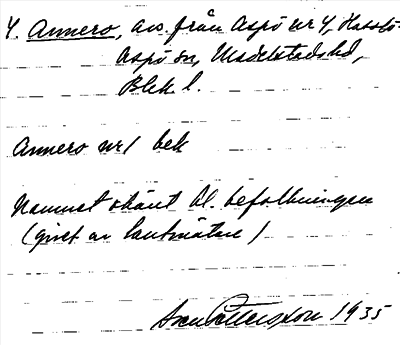 4. Annero, avs. från Aspö nr 4, Hasslö-
Aspö sn, Medelstads hd,
Blek l.
Annero nr 1 bek
Namnet okänt bl. befolkningen
(givet av lantmätare)
Pettersson 1935